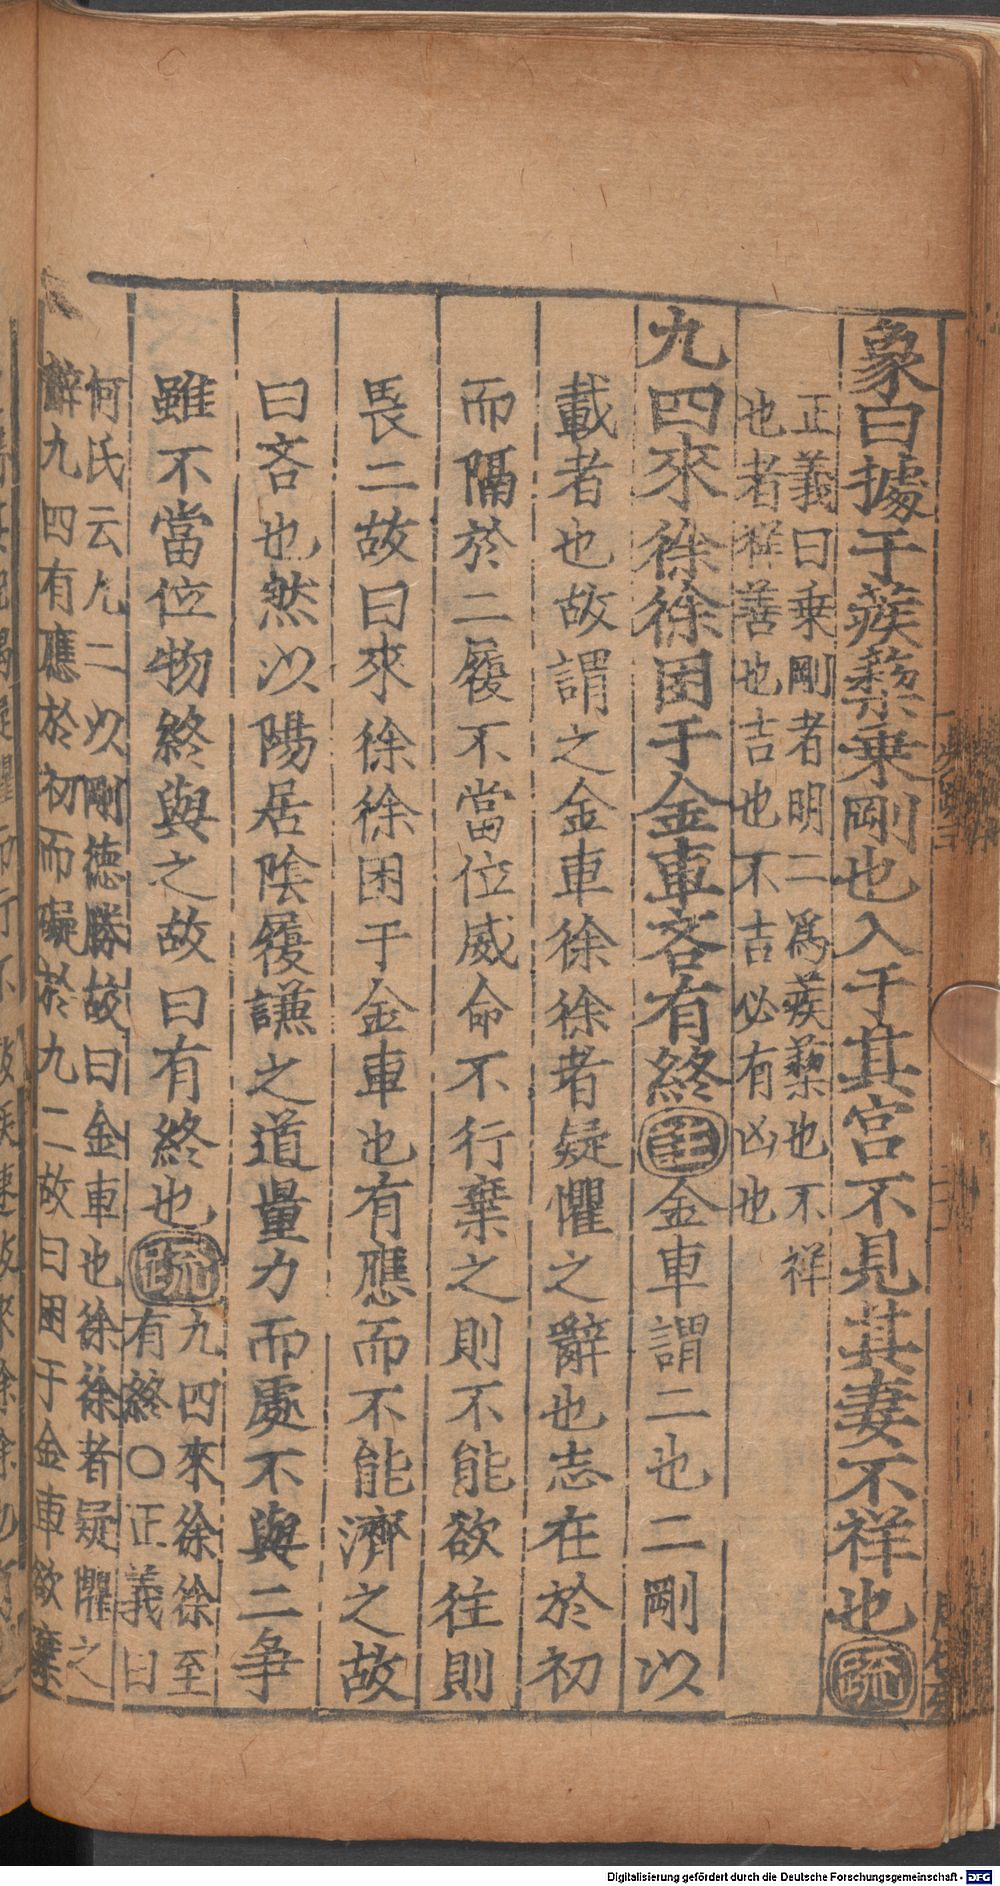 象曰據于蒺䔧乗剛也入于其宮不見其妻不祥也疏
正義曰乗剛者明二爲蒺䔧也不祥
也者祥善也吉也不吉必有凶也
九四來徐徐困于金車吝有終註金車謂二也二剛以
載者也故謂之金車徐徐者疑懼之辭也志在於初
而隔於二履不當位威命不行棄之則不能欲往則
畏二故曰來徐徐困于金車也有應而不能濟之故
曰吝也然以陽居陰履謙之道量力而處不與二争
雖不當位物終與之故曰有終也疏
九四來徐徐至
有終〇正義曰
何氏云九二以剛德勝故曰金車也徐徐者疑懼之
辭九四有應於初而礙於九二故曰困于金車欲棄
Digitalisierung gefördert durch die Deutsche Forschungsgemeinschaft - DFG